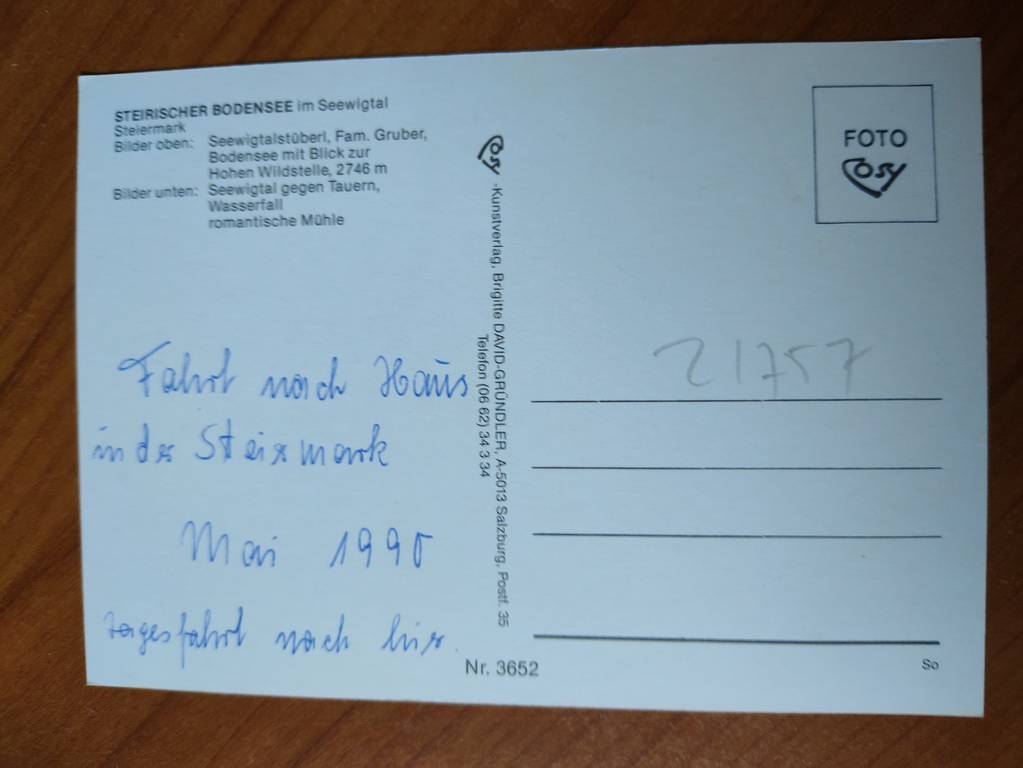 STEIRISCHER BODENSEE im Seewigtal
Steiermark
Bilder oben: Seewigtalstüberl, Fam. Gruber,
Bodensee mit Blick zur
Hohen Wildstelle, 2746 m
Bilder unten: Seewigtal gegen Tauern,
Wasserfall
romantische Mühle
Fahrt nach Haus
in der Steiermark
Mai 1990
Tagesfahrt nach hier.
Cosy -Kunstverlag, Brigitte DAVID-GRÜNDLER, A-5013 Salzburg, Postf. 35
Telefon (06 62) 34 3 34
Nr. 3652
FOTO
Cosy
21757
So